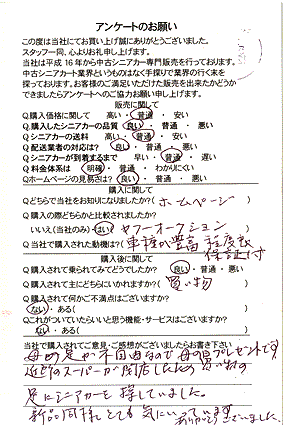 アンケートのお願い
この度は当社にてお買い上げ誠にありがとうございました。
スタッフ一同、心よりお礼申し上げます。
当社は平成16年から中古シニアカー専門販売を行っております。
中古シニアカート業界というものはなく手探りで業界の行く末を
探っております。お客様のご満足いただけた販売を出来たかどうか
できましたらアンケートへのご協力お願い申し上げます。
販売に関して
Q購入価格に関して 高い・普通・安い
Q購入したシニアカーの品質 良い・普通・悪い
Qシニアカーの送料 高い・普通・安い
Q配送業者の対応は? 良い・普通・悪い
Qシニアカーが到着するまで 早い・普通・遅い
Q料金体系は 明確・普通・わかりにくい
Qホームページの見易さは? 良い・普通・悪い
購入に関して
Qどちらで当社をお知りになりましたか?(ホームページ)
Q購入の際どちらかと比較されましたか?
いいえ(当社のみ)・はい(ヤフーオークション)
Q当社で購入された動機は?(車種が豊富 程度良
保証付)
購入後に関して
Q購入されて乗られてみてどうでしたか? 良い・普通・悪い
Q購入されて主にどちらにいかれますか?(買い物)
Q購入されて何かご不満点はございますか?
ない・ある( )
Qこれがついていたらいいと思う機能・サービスはございますか?
ない・ある( )
当社で購入されてご意見・ご感想がございましたらお書き下さい
母の足が不自由なので母の日プレゼントです
近所のスーパーが閉店したため買い物の
足にシニアカーを探していました。
新品同様でとても気にいっています
ありがとうございました。